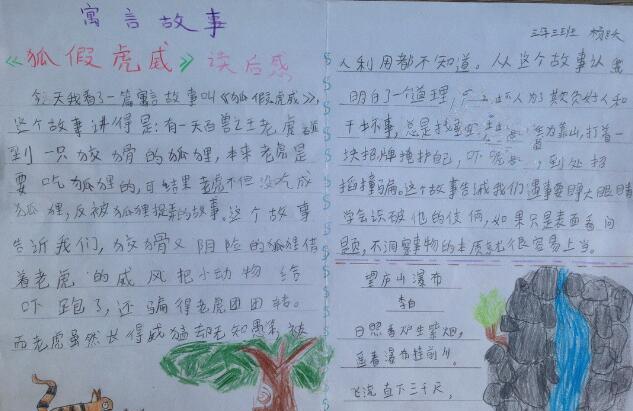 寓言故事
《狐假虎威》读后感
今天我看了一篇寓言故事叫《狐假虎威》，
这个故事讲得是：有一天百兽之王老虎
到一只狡猾的狐狸，本来老虎是
要吃狐狸的，可结果老虎不但没吃成
狐狸，反被狐狸捉弄的故事。这个故事
告诉我们，狡猾又阴险的狐狸借
着老虎的威风把小动物给
吓跑了，还骗得老虎团团转。
而老虎虽然长得威猛却无知愚笨，被
三年三班
人利用都不知道。从这个故事认
明白了一个道理，坏人为了欺负好人和
干坏事，总是找为靠山，打着一
块招牌掩护自己，吓到处招
摇撞骗。这个故事告诫我们遇事要睁大眼睛
学会识破他的伎俩，如果只是表面看问
题，不洞察事物的本质就很容易上当。
望庐山瀑布
李白
日照香炉生紫烟，
遥看瀑布挂前川。
飞流直下三千尺，